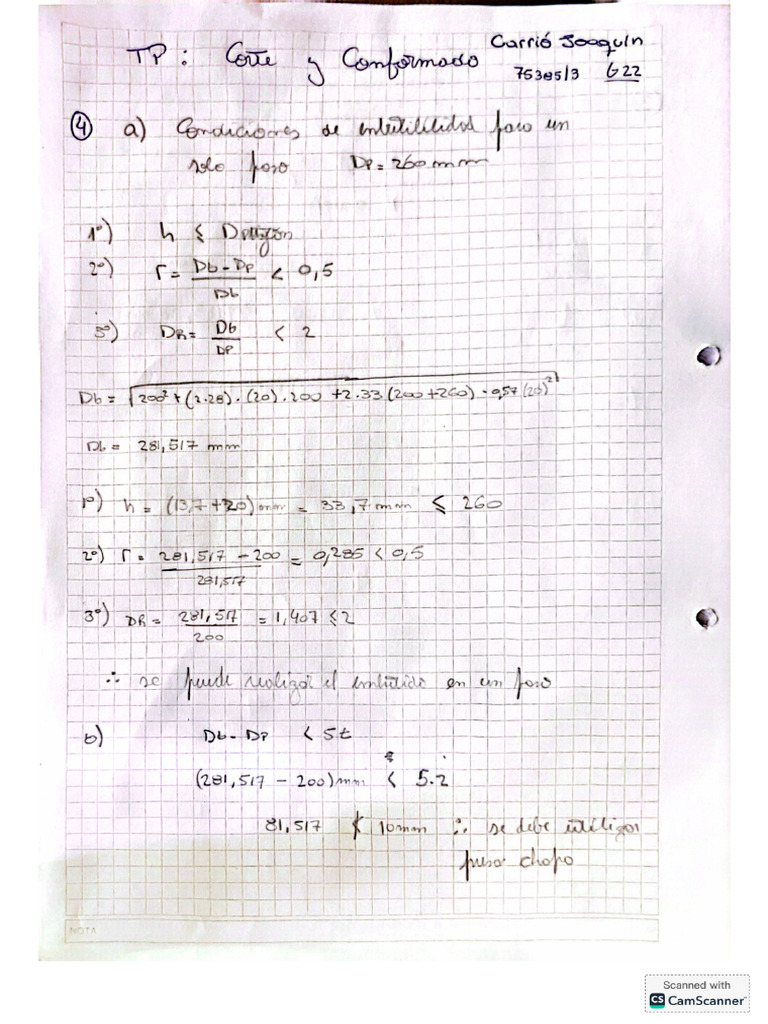 TP: Corte y Conformado Carrió Joaquín
75385/3 G22
④ a) Condiciones de embutibilidad para un
solo paso Dp = 260 mm
1º) h ≤ D punzón
2º) r = Db - Dp / Db < 0,5
3º) DR = Db / DP < 2
Db = √200² + (2.28) . (20) . 200 + 2.33 (200 + 260) - 0,57 (20)²
Db = 281,517 mm
1º) h = (13,7 + 20) mm = 33,7 mm ≤ 260
2º) r = 281,517 - 200 / 281,517 = 0,285 < 0,5
3º) DR = 281,517 / 200 = 1,407 ≤ 2
∴ se puede realizar el embutido en un paso
b) Db - Dp < 5t
(281,517 - 200) mm < 5.2
81,517 ≮ 10mm ∴ se debe utilizar
prensa chapa
NOTA
Scanned with
CS CamScanner